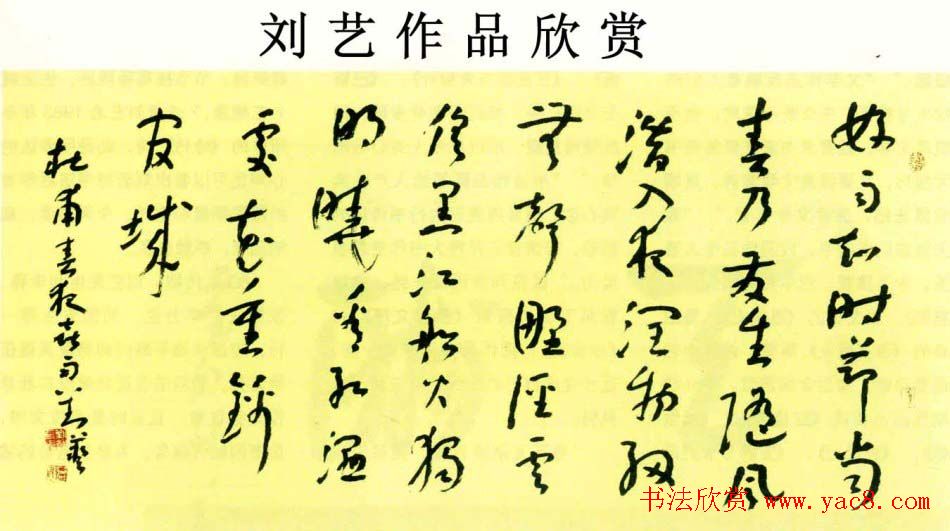 刘艺作品欣赏
好雨知时節当
春乃发生随风
潜入夜润物细
無聲野径云
俱黑江船火独
明晓看红湿
处花重锦
官城
杜甫春夜喜雨 刘艺
书法欣赏 www.yac8.com